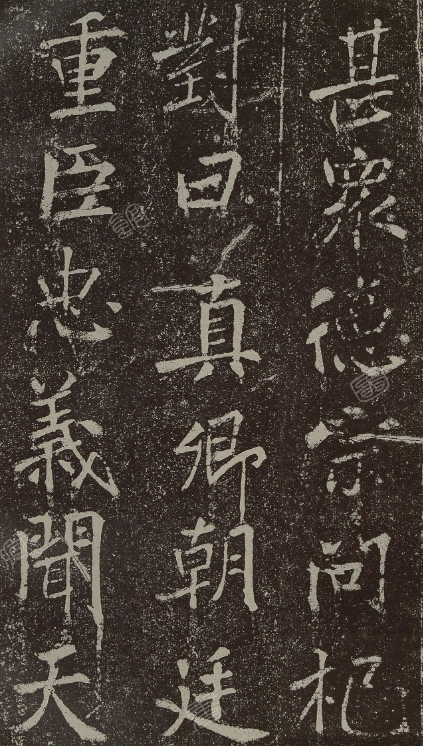 甚衆德宗問杞
對曰真卿朝廷
重臣忠義聞天